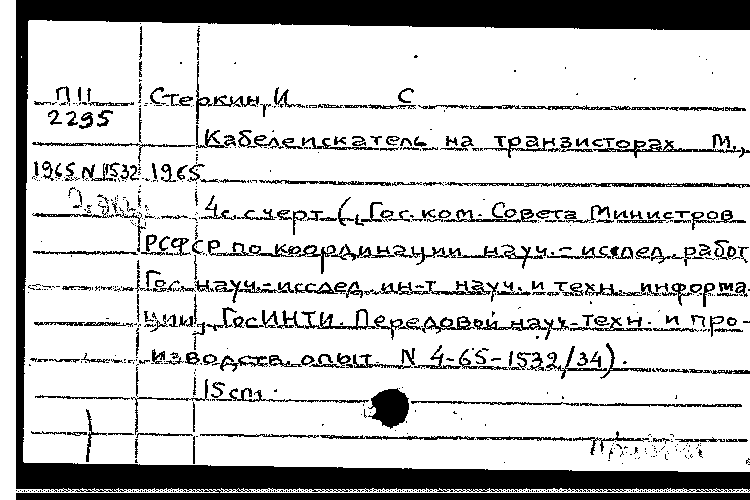 П11 Стеркин, И С
2295
Кабелеискатель на транзисторах М.,
1965 N 1532 1965
4с. с черт. (, Гос. ком. Совета Министров
РСФСР по координации науч.-исслед. работ
Гос. науч.-исслед. ин-т науч. и техн. информа-
ции, ГосИНТИ. Передовой науч.-техн. и про-
изводств. опыт N 4-65-1532/34).
15 cm.